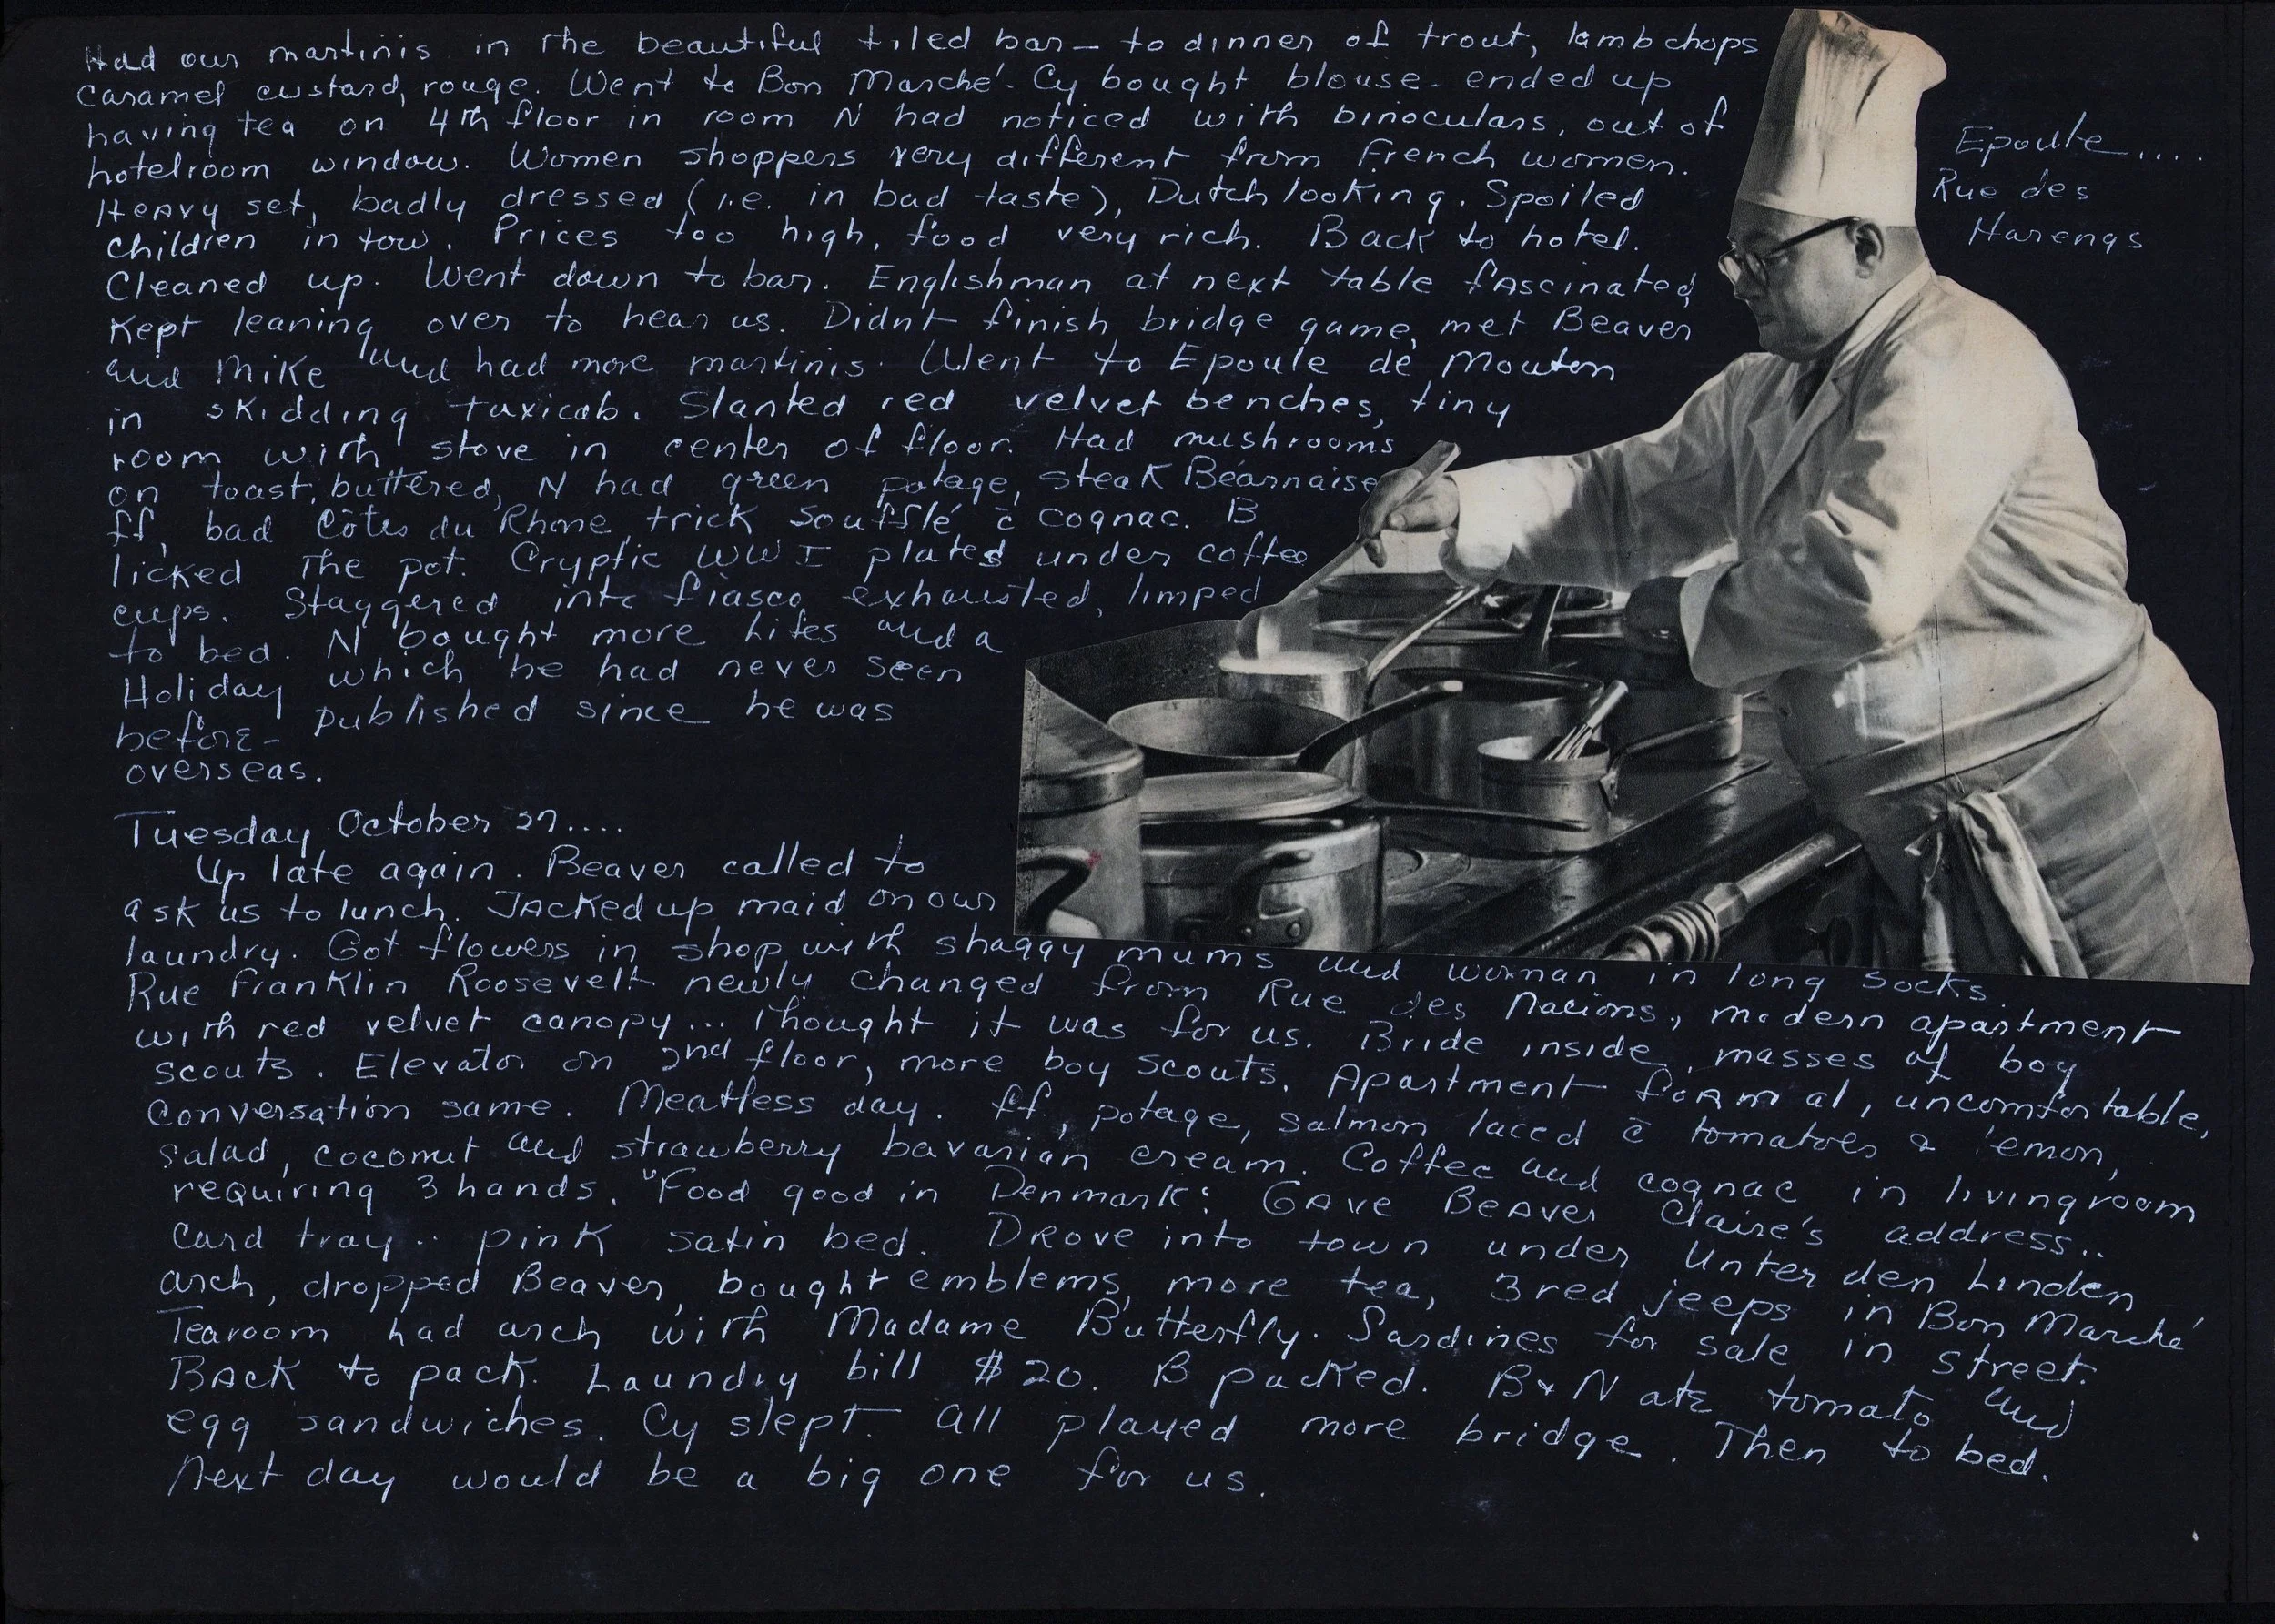 Had our martinis in the beautiful tiled bar — to dinner of trout, lambchops
caramel custard, rouge. Went to Bon Marché. Cy bought blouse - ended up
having tea on 4th floor in room N had noticed with binoculars, out of
hotelroom window. Women shoppers very different from French women.
Heavy set, badly dressed (i.e. in bad taste), Dutch looking. Spoiled
children in tow. Prices too high, food very rich. Back to hotel.
Cleaned up. Went down to bar. Englishman at next table fascinated,
Kept leaning over to hear us. Didn't finish bridge game, met Beaver
and Mike and had more martinis. Went to Epoule de Mouton
in skidding taxicab. Slanted red velvet benches, tiny
room with stove in center of floor. Had mushrooms
on toast, buttered, N had green potage, steak Béarnaise
ff, bad Côtes du Rhone, trick Soufflé c̄ cognac. B
licked the pot. Cryptic WW I plates under coffee
cups. Staggered into fiasco, exhausted, limped
to bed. N bought more Lifes and a
Holiday which he had never seen
before - published since he was
overseas.
Epoule....
Rue des
Harengs
Tuesday October 27....
Up late again. Beaver called to
ask us to lunch. Jacked up maid on our
laundry. Got flowers in shop with shaggy mums and woman in long socks.
Rue Franklin Roosevelt newly changed from Rue des Nacions, modern apartment
with red velvet canopy... Thought it was for us. Bride inside, masses of boy
scouts. Elevator on 2nd floor, more boy scouts. Apartment formal, uncomfortable,
conversation same. Meatless day. ff, potage, salmon laced c̄ tomatoes & lemon,
salad, coconut and strawberry bavarian cream. Coffee and cognac in livingroom
requiring 3 hands. "Food good in Denmark: Gave Beaver Claire's address..
Card tray.. pink satin bed. Drove into town under Unter den Linden
arch, dropped Beaver, bought emblems, more tea, 3 red jeeps in Bon Marché
Tearoom had arch with Madame Butterfly. Sardines for sale in street.
Back to pack. Laundry bill $20. B packed. B & N ate tomato and
egg sandwiches. Cy slept. All played more bridge. Then to bed.
Next day would be a big one for us.